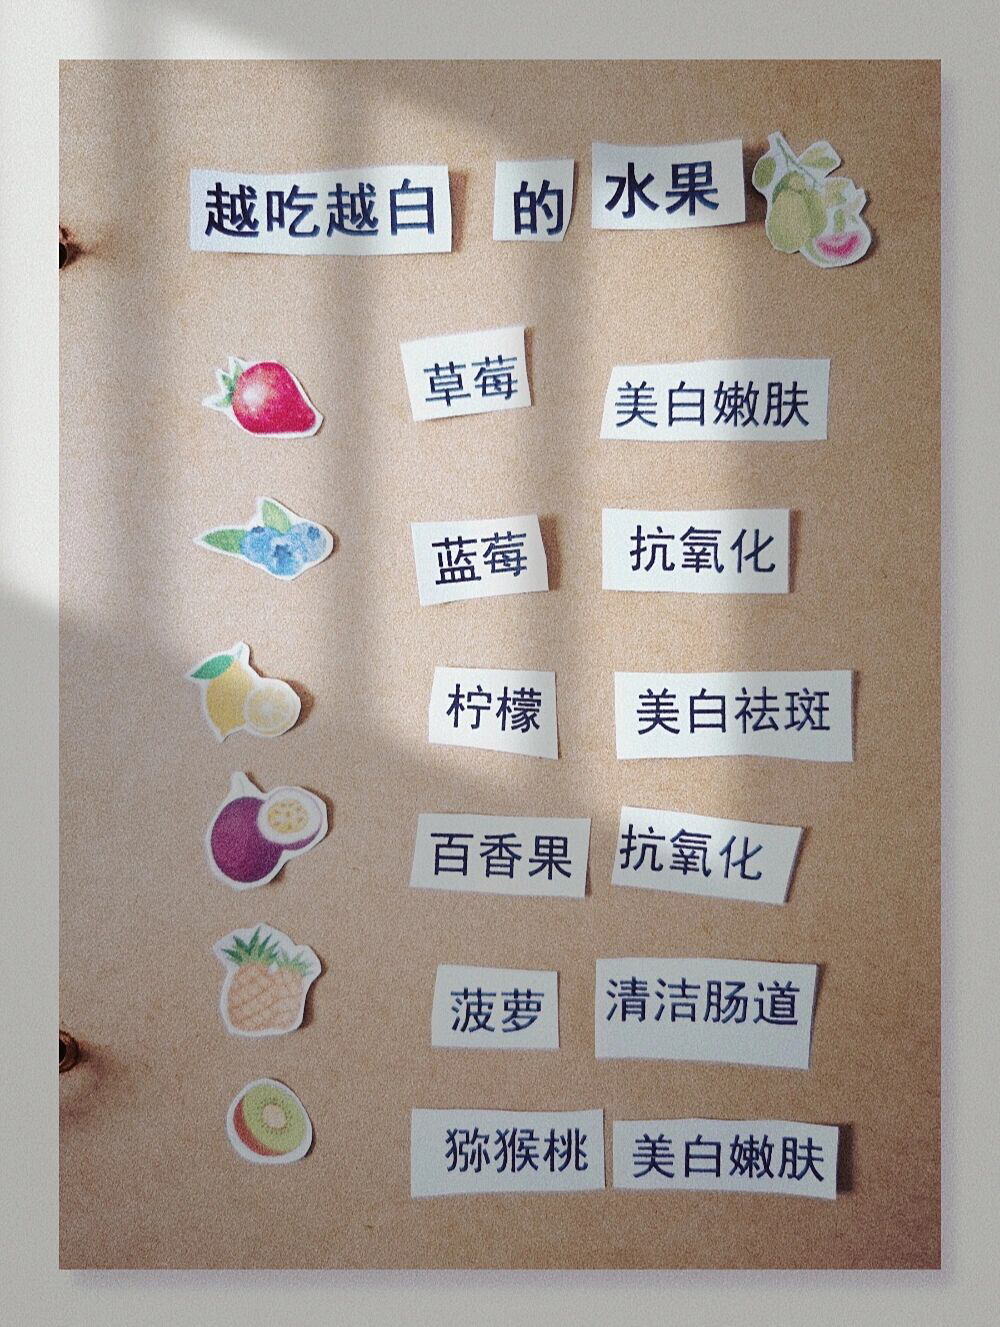 越吃越白 的 水果
草莓 美白嫩肤
蓝莓 抗氧化
柠檬 美白祛斑
百香果 抗氧化
菠萝 清洁肠道
猕猴桃 美白嫩肤